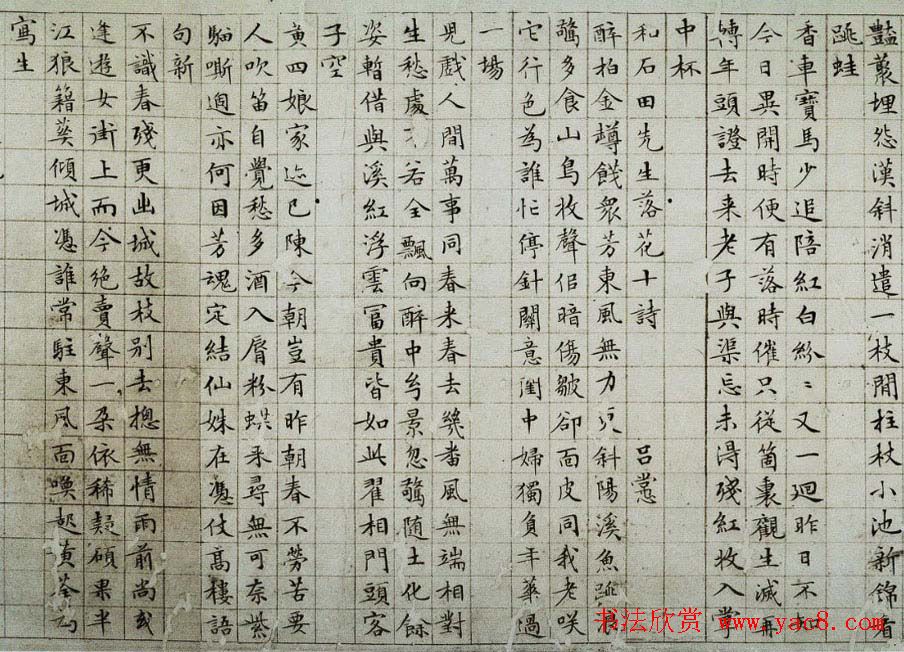 豔叢埋怨漢斜消遣一枝閒拄杖小池新錦看
跳蛙
香車寶馬少追陪紅白紛〻又一廻昨日不如
今日異開時便有落時催只從箇裏觀生滅再
轉年頭證去来老子與渠忘未淂殘紅收入掌
中杯
和石田先生落花十詩 吕㦂
醉拍金罇餞衆芳東風無力更斜陽溪魚跳浪
驚多食山鳥收聲佀暗傷皺卻面皮同我老咲
它行色為誰忙停針關意閨中婦獨負年華過
一場
兒戲人間萬事同春来春去幾番風無端相對
生愁處不若全飄向醉中与景忽驚随土化餘
姿暫借與溪紅浮雲冨貴皆如此翟相門頭客
子空
黄四娘家迹已陳今朝豈有昨朝春不勞苦要
人吹笛自覺愁多酒入脣粉蜨来尋無可奈紫
騮嘶過亦何因芳魂定結仙姝在憑仗髙樓語
句新
不識春殘更出城故枝别去摠無情雨前尚或
逢遊女街上而今绝賣聲一朶依稀疑碩果半
江狼籍葬傾城憑誰常駐東風面喚起黄荃為
寫生
书法欣赏 www.yac8.com